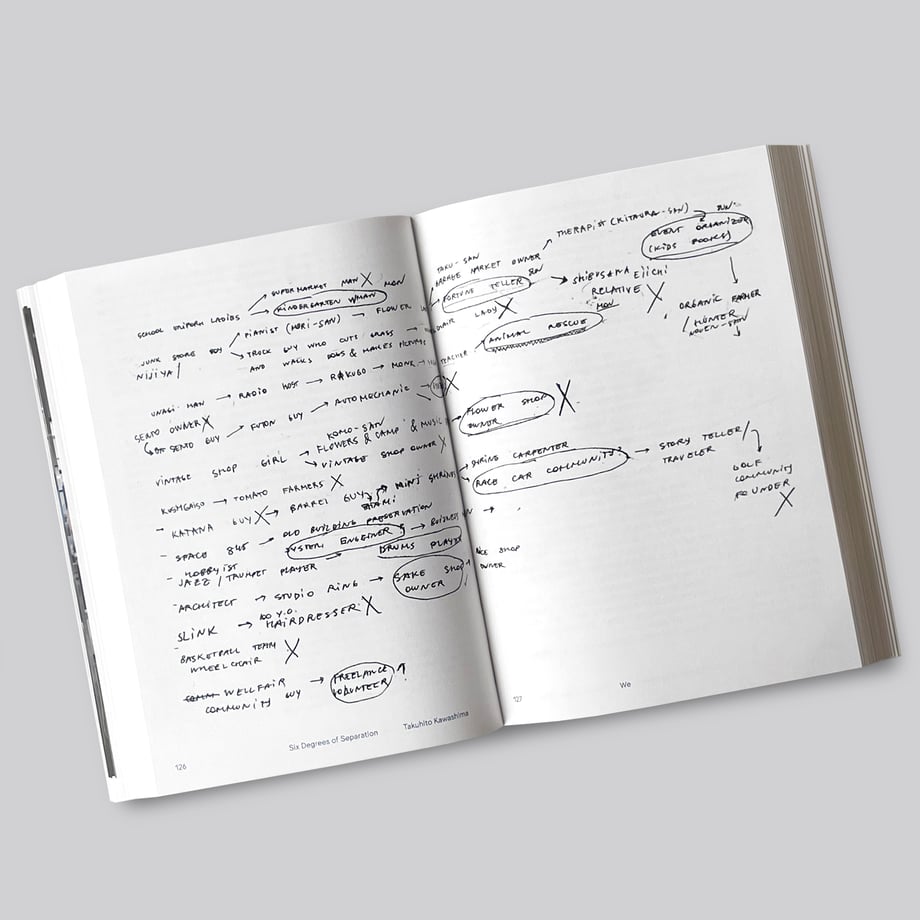 SUPERMARKET MAN X MON
SCHOOL UNIFORM LADIES → KINDERGARTEN WOMAN
PIANIST (MORI-SAN) → FLOWER
JUNK STORE GUY
TRUCK GUY WHO CUTS GRASS
NIJIYA/
AND WALKS DOGS & MAKES PICTURES
UNAGI MAN → RADIO HOST → RAKUGO → MONK →
SENTO OWNER X
SENTO GUY → FUTON GUY → AUTOMECHANIC
KOMO-SAN
VINTAGE SHOP GIRL → FLOWERS & CAMP & MUSIC
VINTAGE SHOP OWNER X
→ TOMATO FARMERS X
- KATANA GUY X → BARREL GUY → MINI SHRINES
- SPACE 845 → OLD BUILDING PRESERVATION
SYSTEM ENGINEER →
HOBBYIST
JAZZ / TRUMPET PLAYER → DRUMS PLAYER
- ARCHITECT → STUDIO RING → SAKE SHOP OWNER
100 Y.O.
SLINK → HAIRDRESSER X
BASKETBALL TEAM
WHEELCHAIR X
WELLFAIR
COMMUNITY GUY → FREELANCE VOLUNTEER
126
Six Degrees of Separation
Takuhito Kawashima
THERAPIST (KITAURA-SAN) →
EVENT ORGANIZER
(KIDS BOOKS)
TAKU-SAN
MARKET OWNER
FORTUNE TELLER SUN
→ SHIBUSAWA EIICHI
RELATIVE X
MON
LADY X
ORGANIC FARMER
/ HUNTER
ANIMAL RESCUE
TEACHER
X
FLOWER SHOP X
OWNER
→ SHRINE CARPENTER
RACE CAR COMMUNITY → STORY TELLER/
TRAVELER
GOLF
COMMUNITY
FOUNDER
X
SHOP
OWNER
127
We